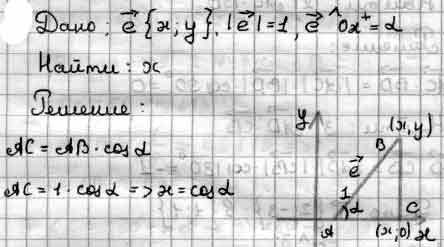 Дано: e⃗ {x; y}, |e⃗|=1, e⃗ ^ Ox⁺=α
Найти: x
Решение:
AC = AB · cosα
AC = 1 · cosα => x = cosα
y
(x, y)
B
e⃗
1
α
A
C
(x, 0)
x